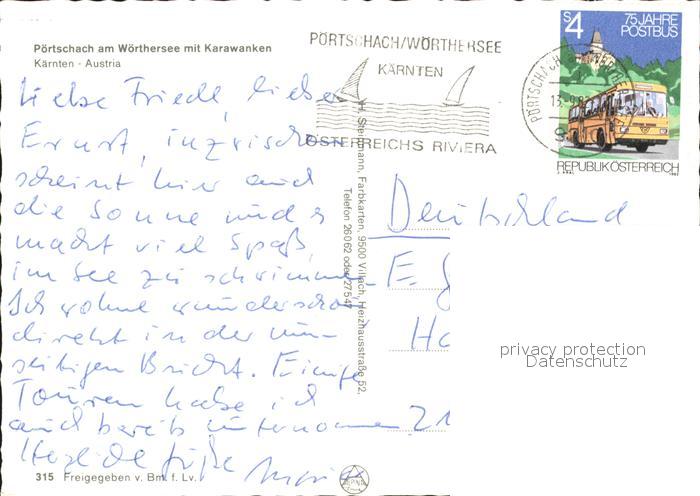 Pörtschach am Wörthersee mit Karawanken
Kärnten - Austria
PÖRTSCHACH/WÖRTHERSEE
KÄRNTEN
ÖSTERREICHS RIVIERA
S 4
75 JAHRE
POSTBUS
REPUBLIK ÖSTERREICH
Liebe Friedl, lieber
Ernst, inzwischen
scheint hier auch
die Sonne und es
macht viel Spaß,
im See zu schwimmen.
Ich wohne wunderschön
direkt in der
Bucht. Einige
Touren habe ich
auch bereits unternommen
Herzliche Grüße
H. Steinmann, Farbkarten, 9500 Villach, Heizhausstraße 52,
Telefon 26062 oder 27547
Deutschland
E. G
Ha
21
privacy protection
Datenschutz
315 Freigegeben v. Bm. f. Lv.